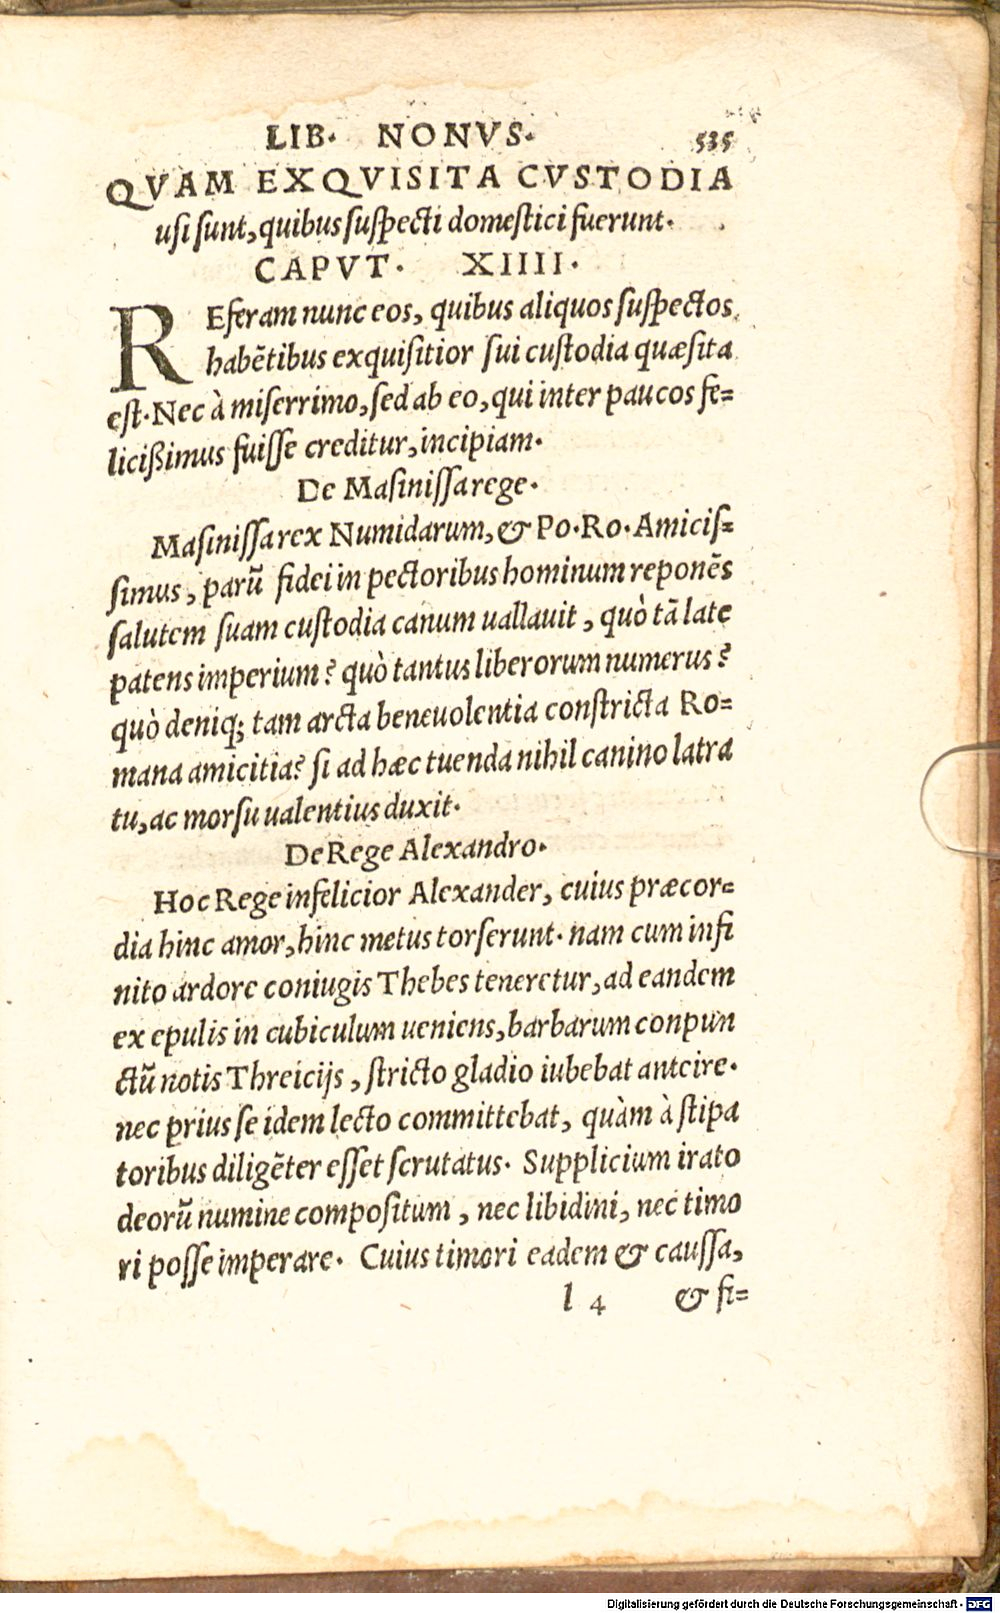 LIB. NONVS. 535
QVAM EXQVISITA CVSTODIA
usi sunt, quibus suspecti domestici fuerunt.
CAPVT. XIIII.
REferam nunc eos, quibus aliquos suspectos
habẽtibus exquisitior sui custodia quæsita
est. Nec à miserrimo, sed ab eo, qui inter paucos fe=
licißimus fuisse creditur, incipiam.
De Masinissa rege.
Masinissa rex Numidarum, & Po. Ro. Amicis=
simus, parũ fidei in pectoribus hominum reponẽs
salutem suam custodia canum uallauit, quò tã late
patens imperium? quò tantus liberorum numerus?
quò deniq; tam arcta beneuolentia constricta Ro=
mana amicitia? si ad hæc tuenda nihil canino latra
tu, ac morsu ualentius duxit.
De Rege Alexandro.
Hoc Rege infelicior Alexander, cuius præcor=
dia hinc amor, hinc metus torserunt. nam cum infi
nito ardore coniugis Thebes teneretur, ad eandem
ex epulis in cubiculum ueniens, barbarum conpun
ctũ notis Threicijs, stricto gladio iubebat anteire.
nec prius se idem lecto committebat, quàm à stipa
toribus diligẽter esset scrutatus. Supplicium irato
deorũ numine compositum, nec libidini, nec timo
ri posse imperare. Cuius timori eadem & caussa,
l 4 & fi=
Digitalisierung gefördert durch die Deutsche Forschungsgemeinschaft - DFG